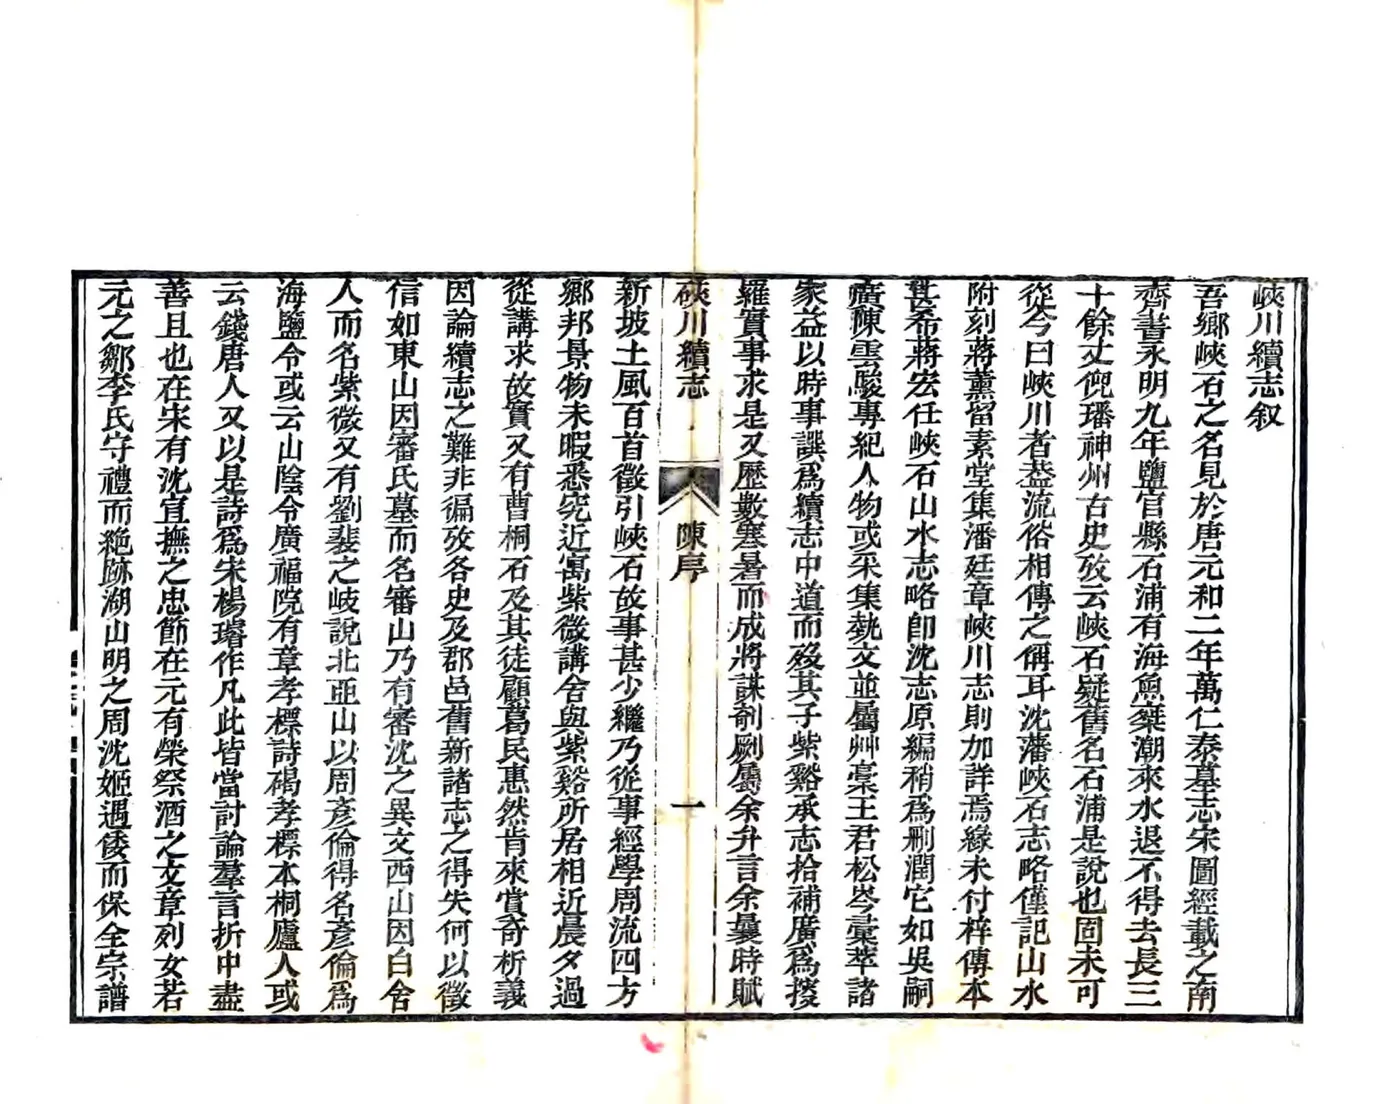 峽川續志叙
吾鄉峽石之名見於唐元和二年萬仁泰墓志宋圖經載之南
齊書永明九年鹽官縣石浦有海魚椉潮來水退不得去長三
十餘丈倪璠神州古史攷云峽石疑舊名石浦是說也固未可
從今曰峽川者葢流俗相傳之偁耳沈藩峽石志略僅記山水
附刻蔣薰留素堂集潘廷章峽川志則加詳焉緣未付梓傳本
甚希蔣宏任峽石山水志略卽沈志原編稍爲刪潤它如吳嗣
廣陳雲駿專紀人物或采集藝文並屬艸稾王君松岑彚萃諸
家益以時事譔爲續志中道而歿其子紫谿承志拾補廣爲搜
羅實事求是又歷數寒暑而成將謀剞劂屬余弁言余曩時賦
硤川續志
陳序
一
新坡土風百首徵引峽石故事甚少繼乃從事經學周流四方
鄉邦景物未暇悉究近寓紫微講舍與紫谿所居相近晨夕過
從講求故實又有曹桐石及其徒顧葛民惠然肯來賞奇析義
因論續志之難非徧攷各史及郡邑舊新諸志之得失何以徵
信如東山因審氏墓而名審山乃有審沈之異文西山因白舍
人而名紫微又有劉裴之岐說北亞山以周彥倫得名彥倫爲
海鹽令或云山陰令廣福院有章孝標詩碣孝標本桐廬人或
云錢唐人又以是詩爲宋楊璿作凡此皆當討論羣言折中盡
善且也在宋有沈宣撫之忠節在元有榮祭酒之文章列女若
元之鄒李氏守禮而絶跡湖山明之周沈姬遇倭而保全宗譜